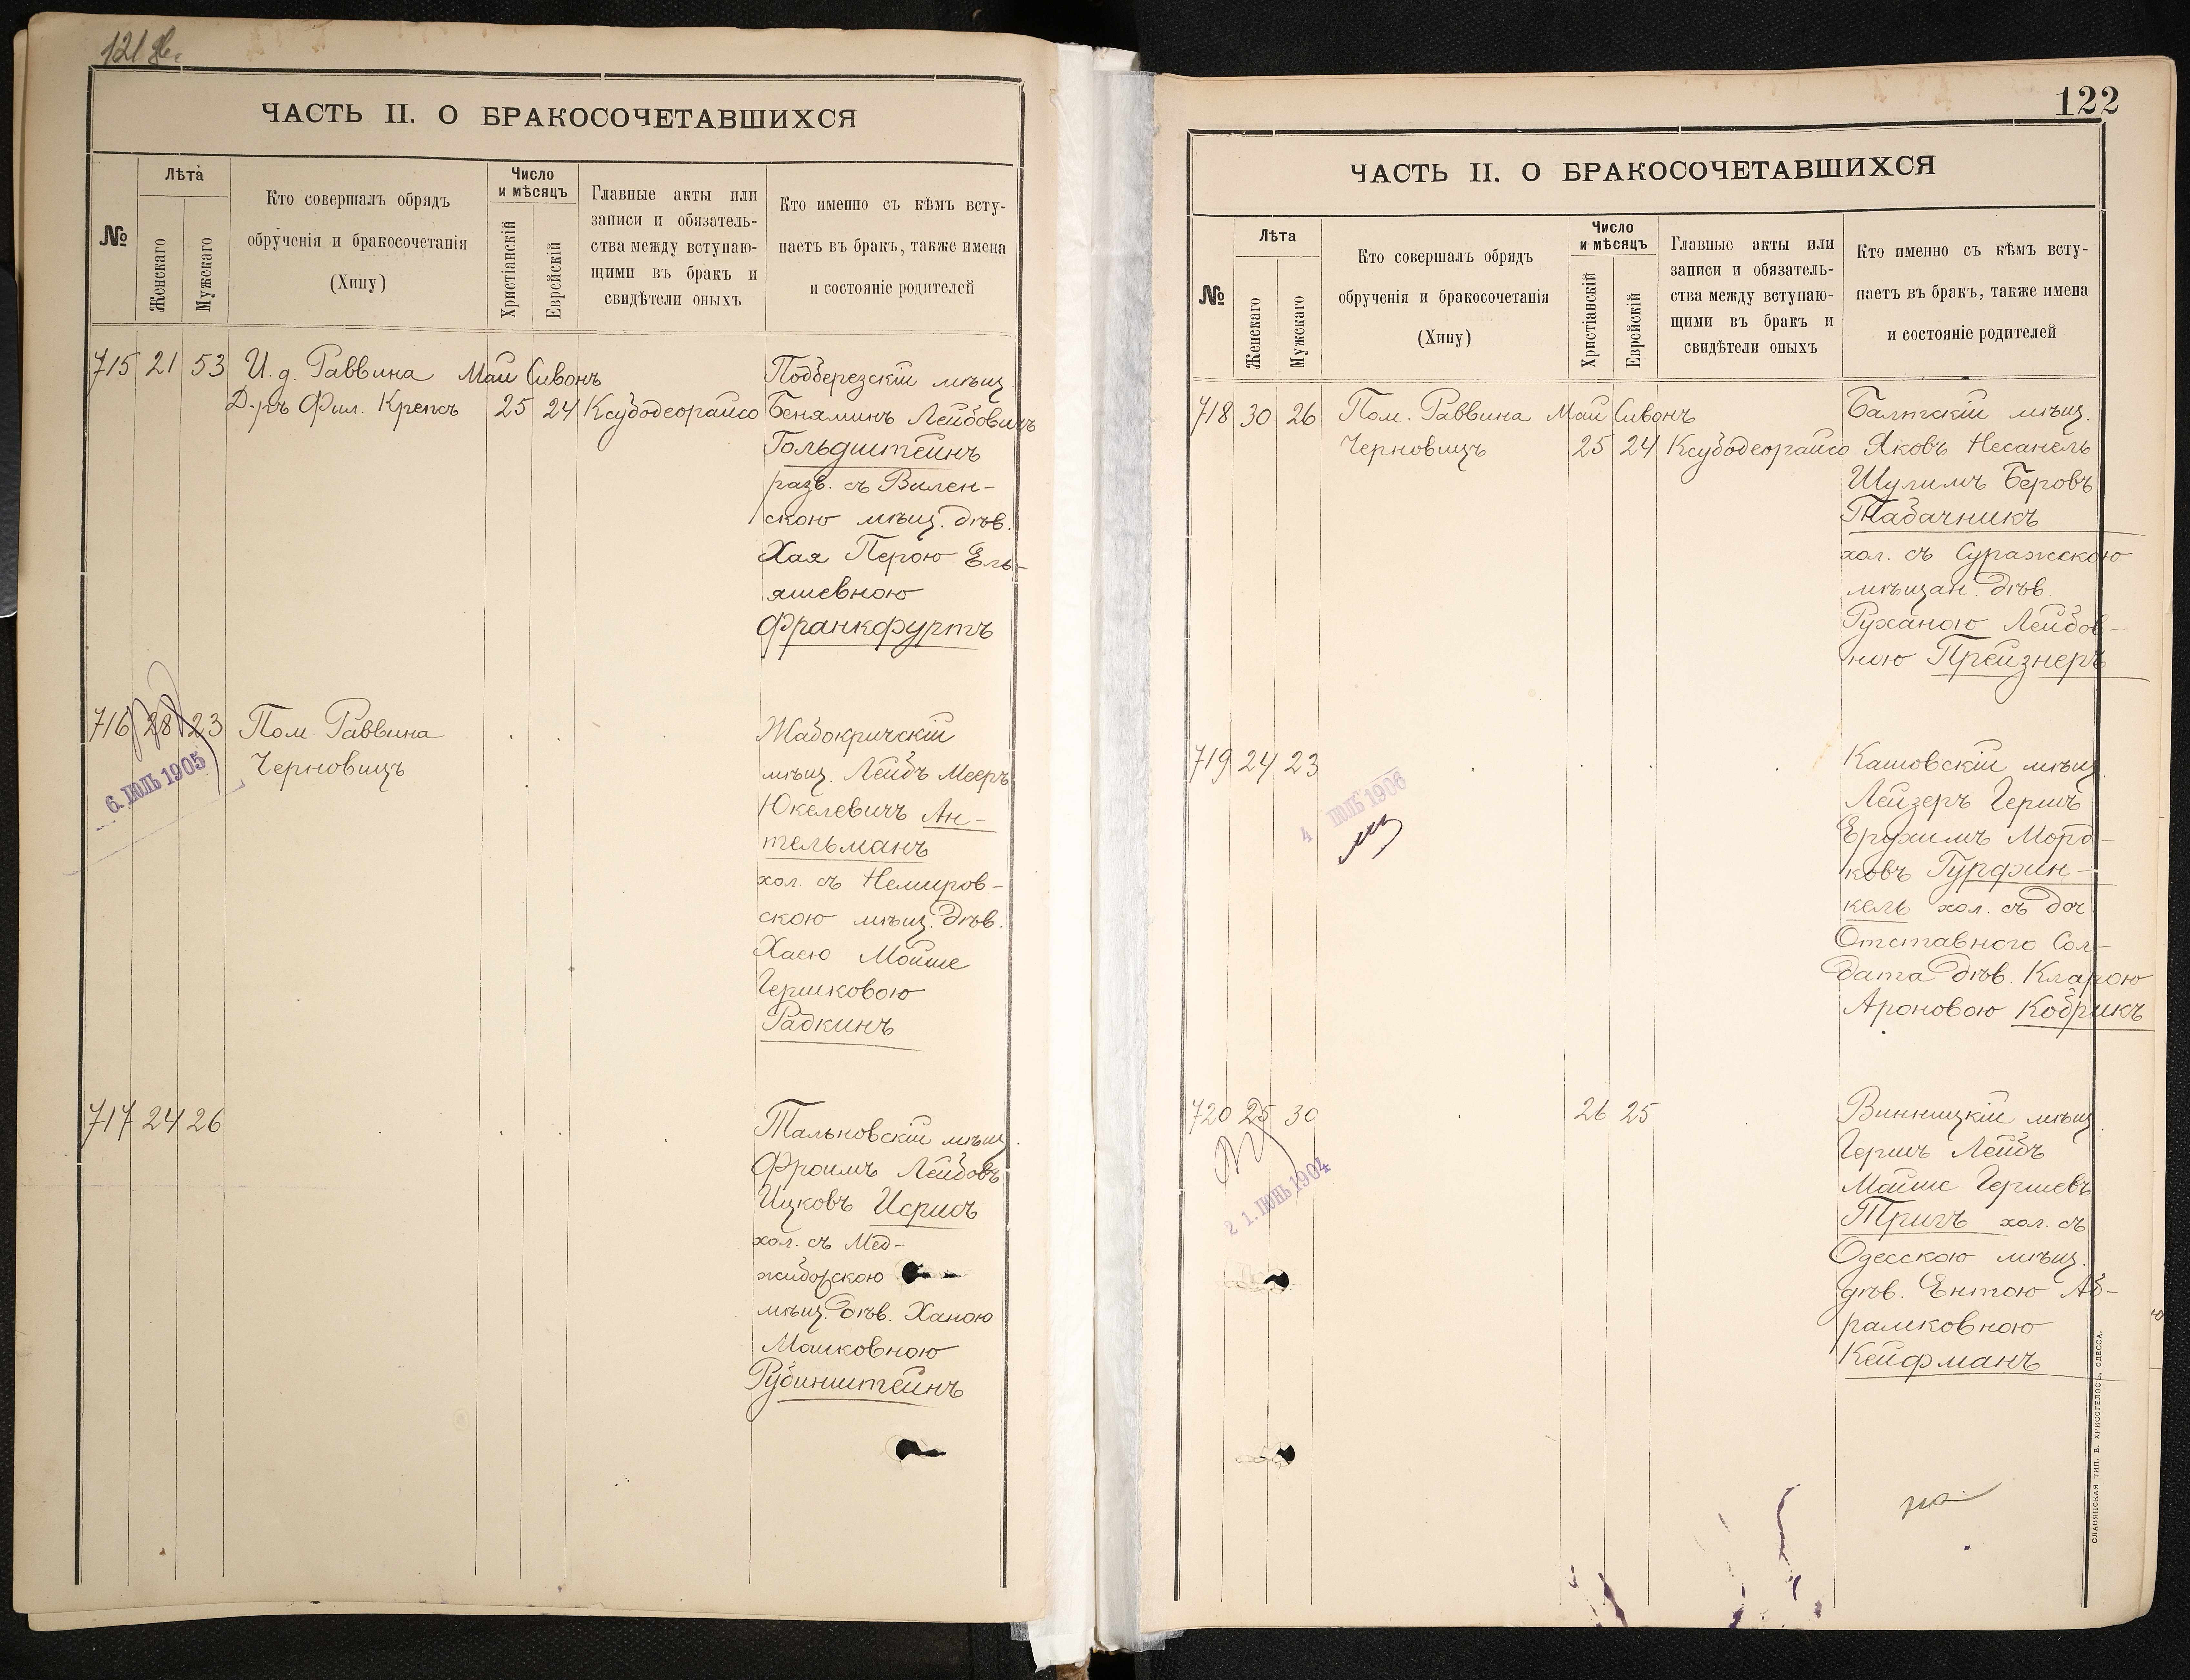 121
ЧАСТЬ II. О БРАКОСОЧЕТАВШИХСЯ
№
Лѣта
Женскаго
Мужскаго
Кто совершалъ обрядъ
обрученія и бракосочетанія
(Хипу)
Число
и мѣсяцъ
Христіанскій
Еврейскій
Главные акты или
записи и обязатель-
ства между вступаю-
щими въ бракъ и
свидѣтели оныхъ
Кто именно съ кѣмъ всту-
паетъ въ бракъ, также имена
и состояніе родителей
715 21 53 И. д. Раввина Май Сивонъ
Д-ръ Фил. Крепсъ 25 24 Ксубодеорайсо
Подберезскій мѣщ.
Беняминъ Лейбовичъ
Гольдштейнъ
разв. съ Вилен-
скою мѣщ. дѣв.
Хая Перою Ель-
яшевною
Франкфуртъ
716 28 23 Пом. Раввина
Черновицъ
6. ІЮЛЬ 1905
Жабокричскій
мѣщ. Лейбъ Мееръ
Юкелевичъ Ан-
тельманъ
хол. съ Немиров-
скою мѣщ. дѣв.
Хаею Мойше
Гершковою
Радкинъ
717 24 26
Тальновскій мѣщ.
Фроимъ Лейбовъ
Ицковъ Исрисъ
хол. съ Мед-
жиборскою
мѣщ. дѣв. Ханою
Мошковною
Рубинштейнъ
122
ЧАСТЬ II. О БРАКОСОЧЕТАВШИХСЯ
№
Лѣта
Женскаго
Мужскаго
Кто совершалъ обрядъ
обрученія и бракосочетанія
(Хипу)
Число
и мѣсяцъ
Христіанскій
Еврейскій
Главные акты или
записи и обязатель-
ства между вступаю-
щими въ бракъ и
свидѣтели оныхъ
Кто именно съ кѣмъ всту-
паетъ въ бракъ, также имена
и состояніе родителей
718 30 26 Пом. Раввина Май Сивонъ
Черновицъ 25 24 Ксубодеорайсо
Балтскій мѣщ.
Яковъ Несанель
Шулимъ Беровъ
Табачникъ
хол. съ Суражскою
мѣщан. дѣв.
Руханою Лейбов-
ною Прейзнеръ
719 24 23
4 ІЮЛЬ 1906
Кашовскій мѣщ.
Лейзеръ Гершъ
Ерохимъ Морд-
ковъ Гурфин-
кель хол. съ доч.
Отставного Сол-
дата дѣв. Кларою
Ароновою Кобрикъ
720 25 30 26 25
2 1. ІЮНЬ 1904
Винницкій мѣщ.
Гершъ Лейбъ
Мойше Гершевъ
Тригъ хол. съ
Одесскою мѣщ.
дѣв. Ентою Аб-
рамковною
Кейфманъ
СЛАВЯНСКАЯ ТИП. Е. ХРИСОГЕЛОСЪ, ОДЕССА.